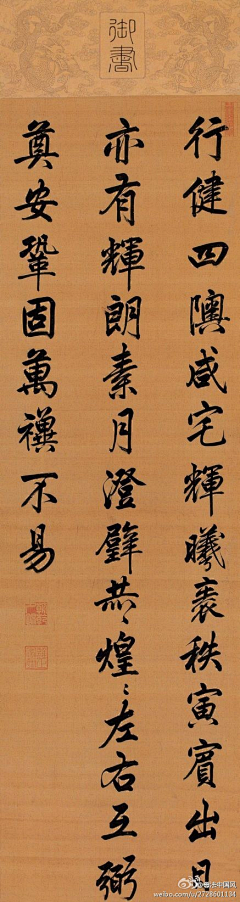 御書
行健四隩咸宅輝曦秩寅賓出日
亦有輝朗素月澄璧煌〻左右互弼
奠安鞏固萬禩不易
@书法中国风
weibo.com/u/2728501134